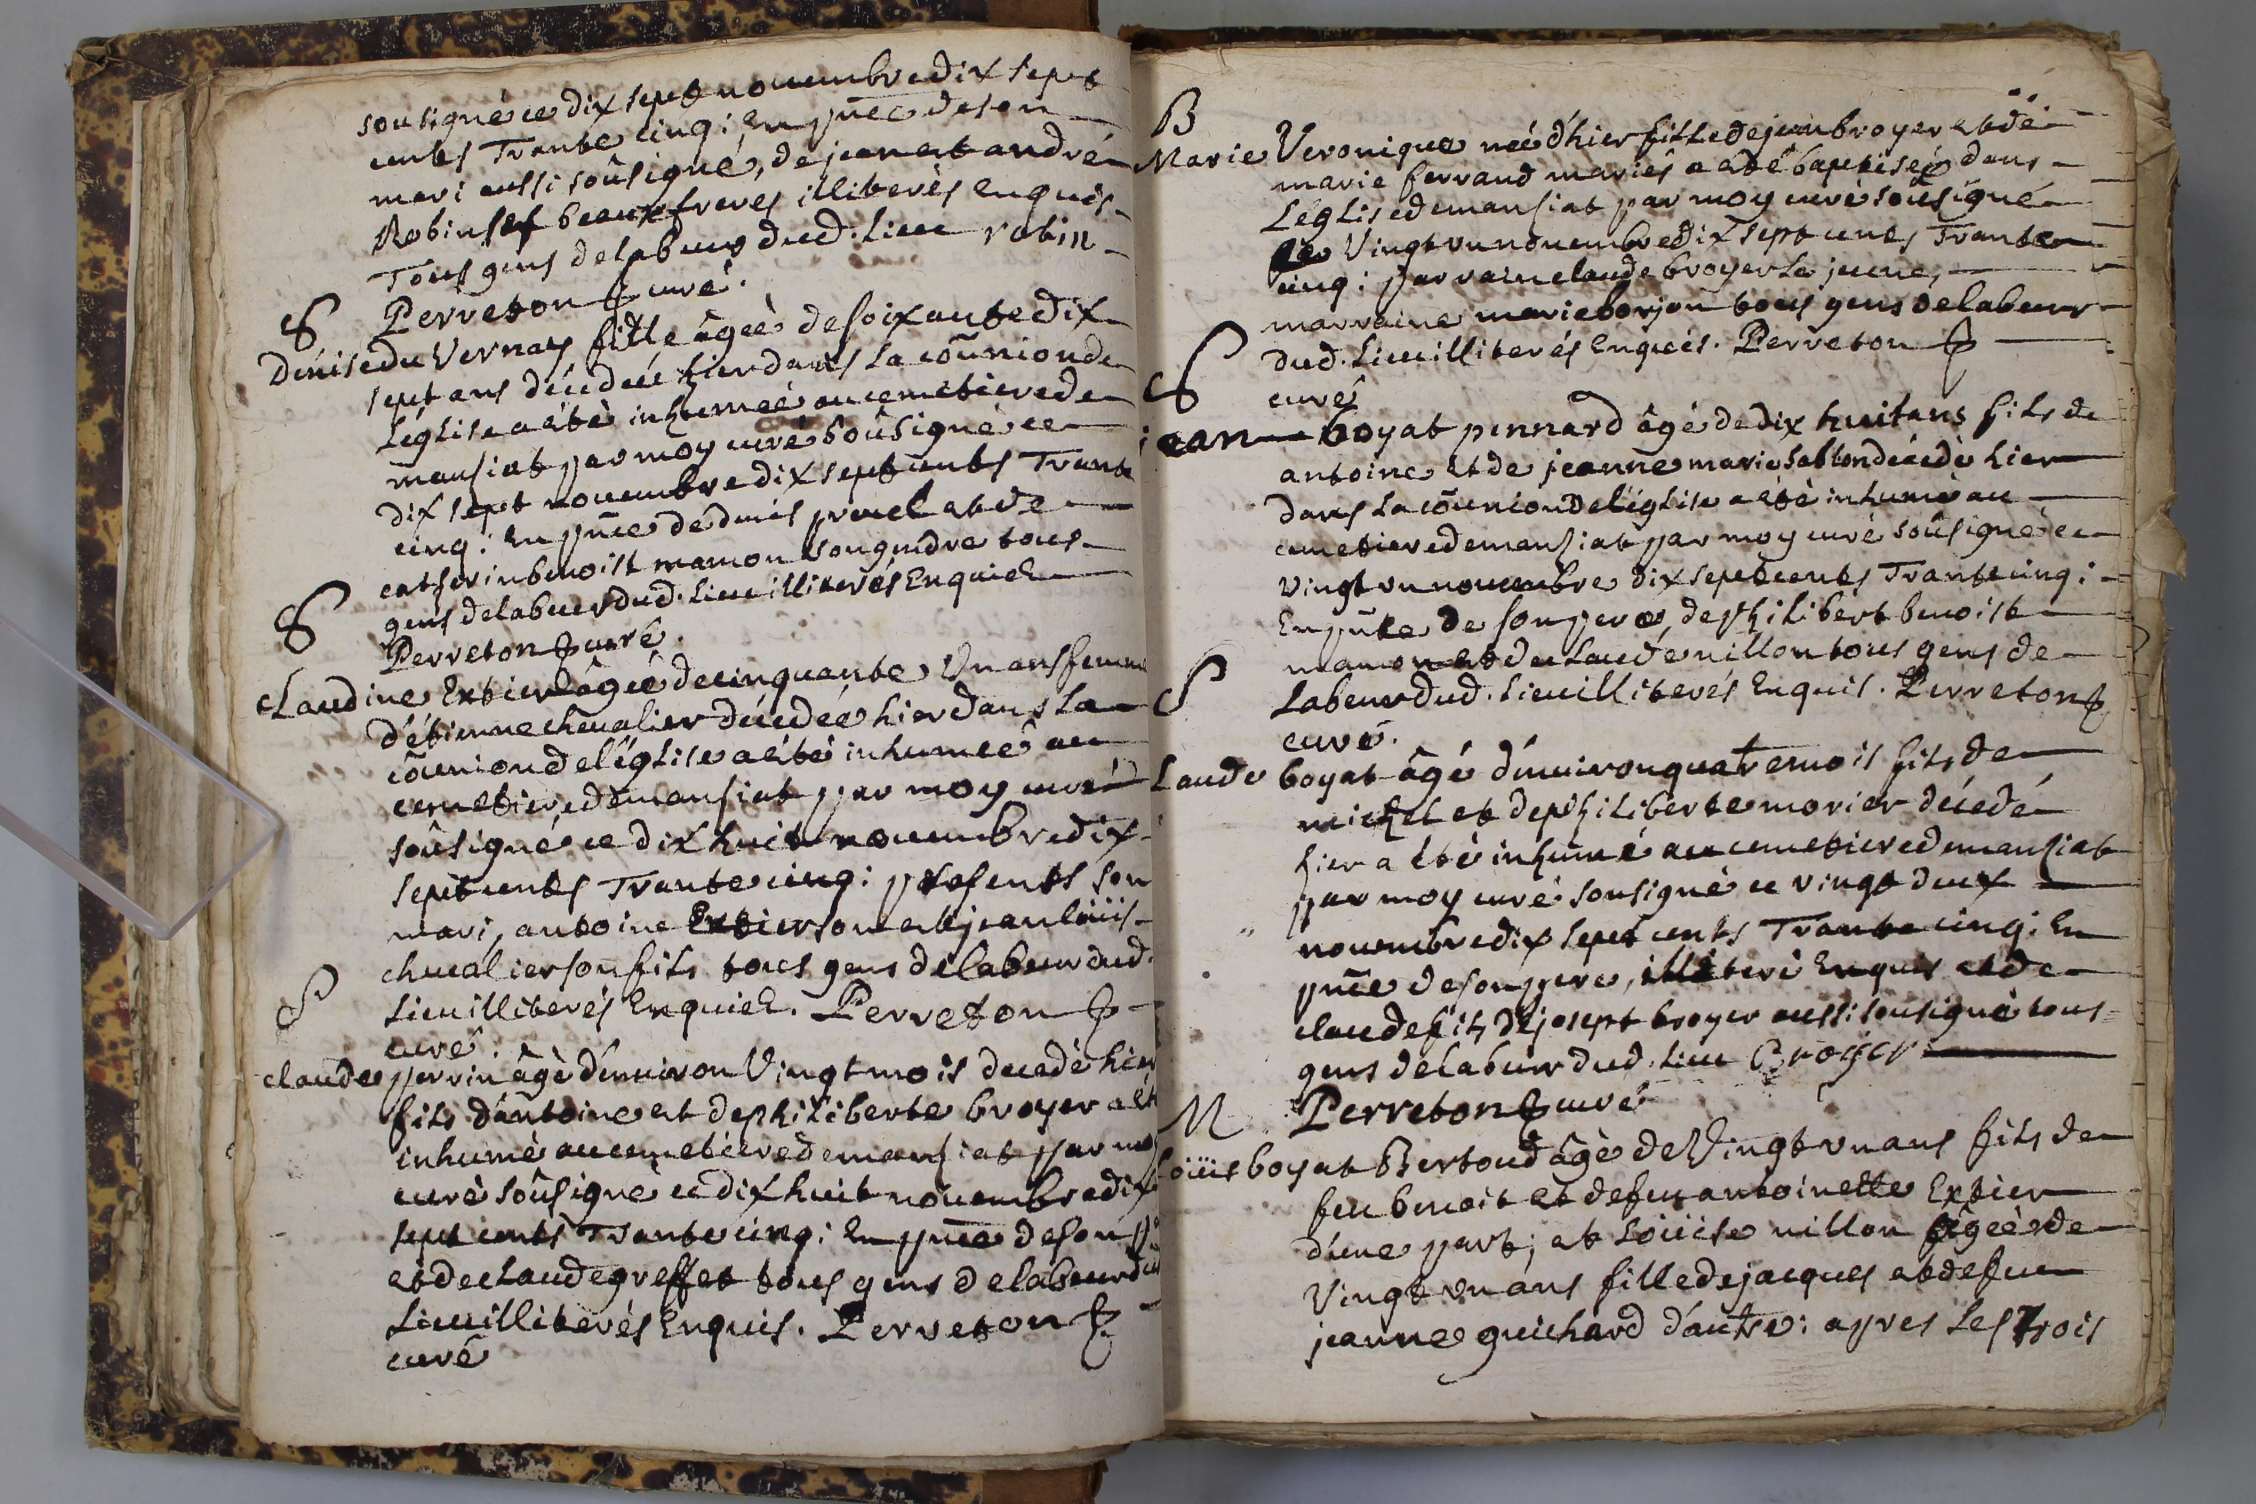 sousigné ce dix sept novembre dix sept
cents Trante cinq: En pñce de son
mari aussi soûsigné, de jean et andré
Robin ses beaux freres illiterés enquis
Tous gens de labeur dud. lieu robin
Perreton curé.
S
Dénise du Vernay fille âgeè de soixante dix
sept ans décedeé hier dans la cõunion de
l'églisse a étè inhumeé au cemetiere de
mansiat par moy curé soûsigné ce
dix sept novembre dix sept cents Trante
cinq: En pñce de denis et de
catherin benoist mamon tous
gens de labeur dud. lieu illiterés Enquis
Perreton curé.
S
Claudine Extier âgeé de cinquante Un ans femme
d'étienne chevalier décedeé hier dans la
cõunion de l'églisse a étè inhumeé au
cemetiere de mansiat par moy curé
soûsigné ce dix huit novembre dix
sept cents Trante cinq: présents son
mari, antoine Extier son et jean loüis
chevalier son fils tous gens de labeur dud.
lieu illiterés Enquis. Perreton
curé.
S
claude perrin âgè d'environ Vingt mois decedé hier
fils d'antoine et de philiberte broyer a été
inhumé au cemetiere de mansiat par moy
curé soûsigné ce dix huit novembre dix
sept cents Trante cinq: En pñce de son
et de claude greffet tous gens de labeur dud
lieu illiterés Enquis. Perreton
curé
B
Marie Veronique neé d'hier fille de jean broyer et de
marie ferrand mariés a été baptiseé dans
l'églisse de mansiat par moy curé soûsigné
ce Vingt un novembre dix sept cents Trante
cinq: parrain claude broyer le jeune,
marraine marie borjon tous gens de labeur
dud. lieu illiterés Enquis. Perreton
curé
S
jean boyat pennard âgé de dix huit ans fils de
antoine et de jeanne marie sablon décedé hier
dans la cõunion de l'églisse a étè inhumé au
cemetiere de mansiat par moy curé soûsigné ce
vingt un novembre dix sept cents Trante cinq:
En pñce de son pere, de philibert benoist
mamon et de claude nillon tous gens de
labeur dud. lieu illiterés Enquis. Perreton
curé.
S
Claude boyat âgé d'environ quatre mois fils de
michel et de philiberte morier décedé
hier a été inhumé au cemetiere de mansiat
par moy curé sousigné ce vingt deux
novembre dix sept cents Trante cinq: En
pñce de son pere, illiteré Enquis et de
claude fils de josept broyer aussi sousigné tous
gens de labeur dud. lieu Broyer
Perreton curé
M
Loüis boyat Bertoud âgè de Vingt un ans fils de
feu benoit et de feu antoinette Extier
d'une part; et Loüise nillon âgeè de
Vingt un ans fille de jacques et de feu
jeanne guichard d'autre: apres les Trois